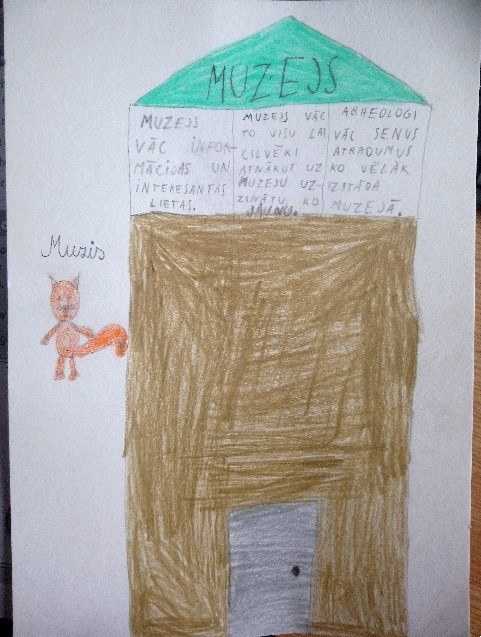 MUZEJS
MUZEJS
VĀC INFOR-
MĀCIJAS UN
INTERESANTAS
LIETAS.
MUZEJS VĀC
TO VISU LAI
CILVĒKI
ATNĀKOT UZ
MUZEJU UZ-
ZINĀTU KO
JAUNU.
ARHEOLOGI
VĀC SENUS
ATRADUMUS
KO VĒLĀK
IZSTĀDA
MUZEJĀ.
Muzis